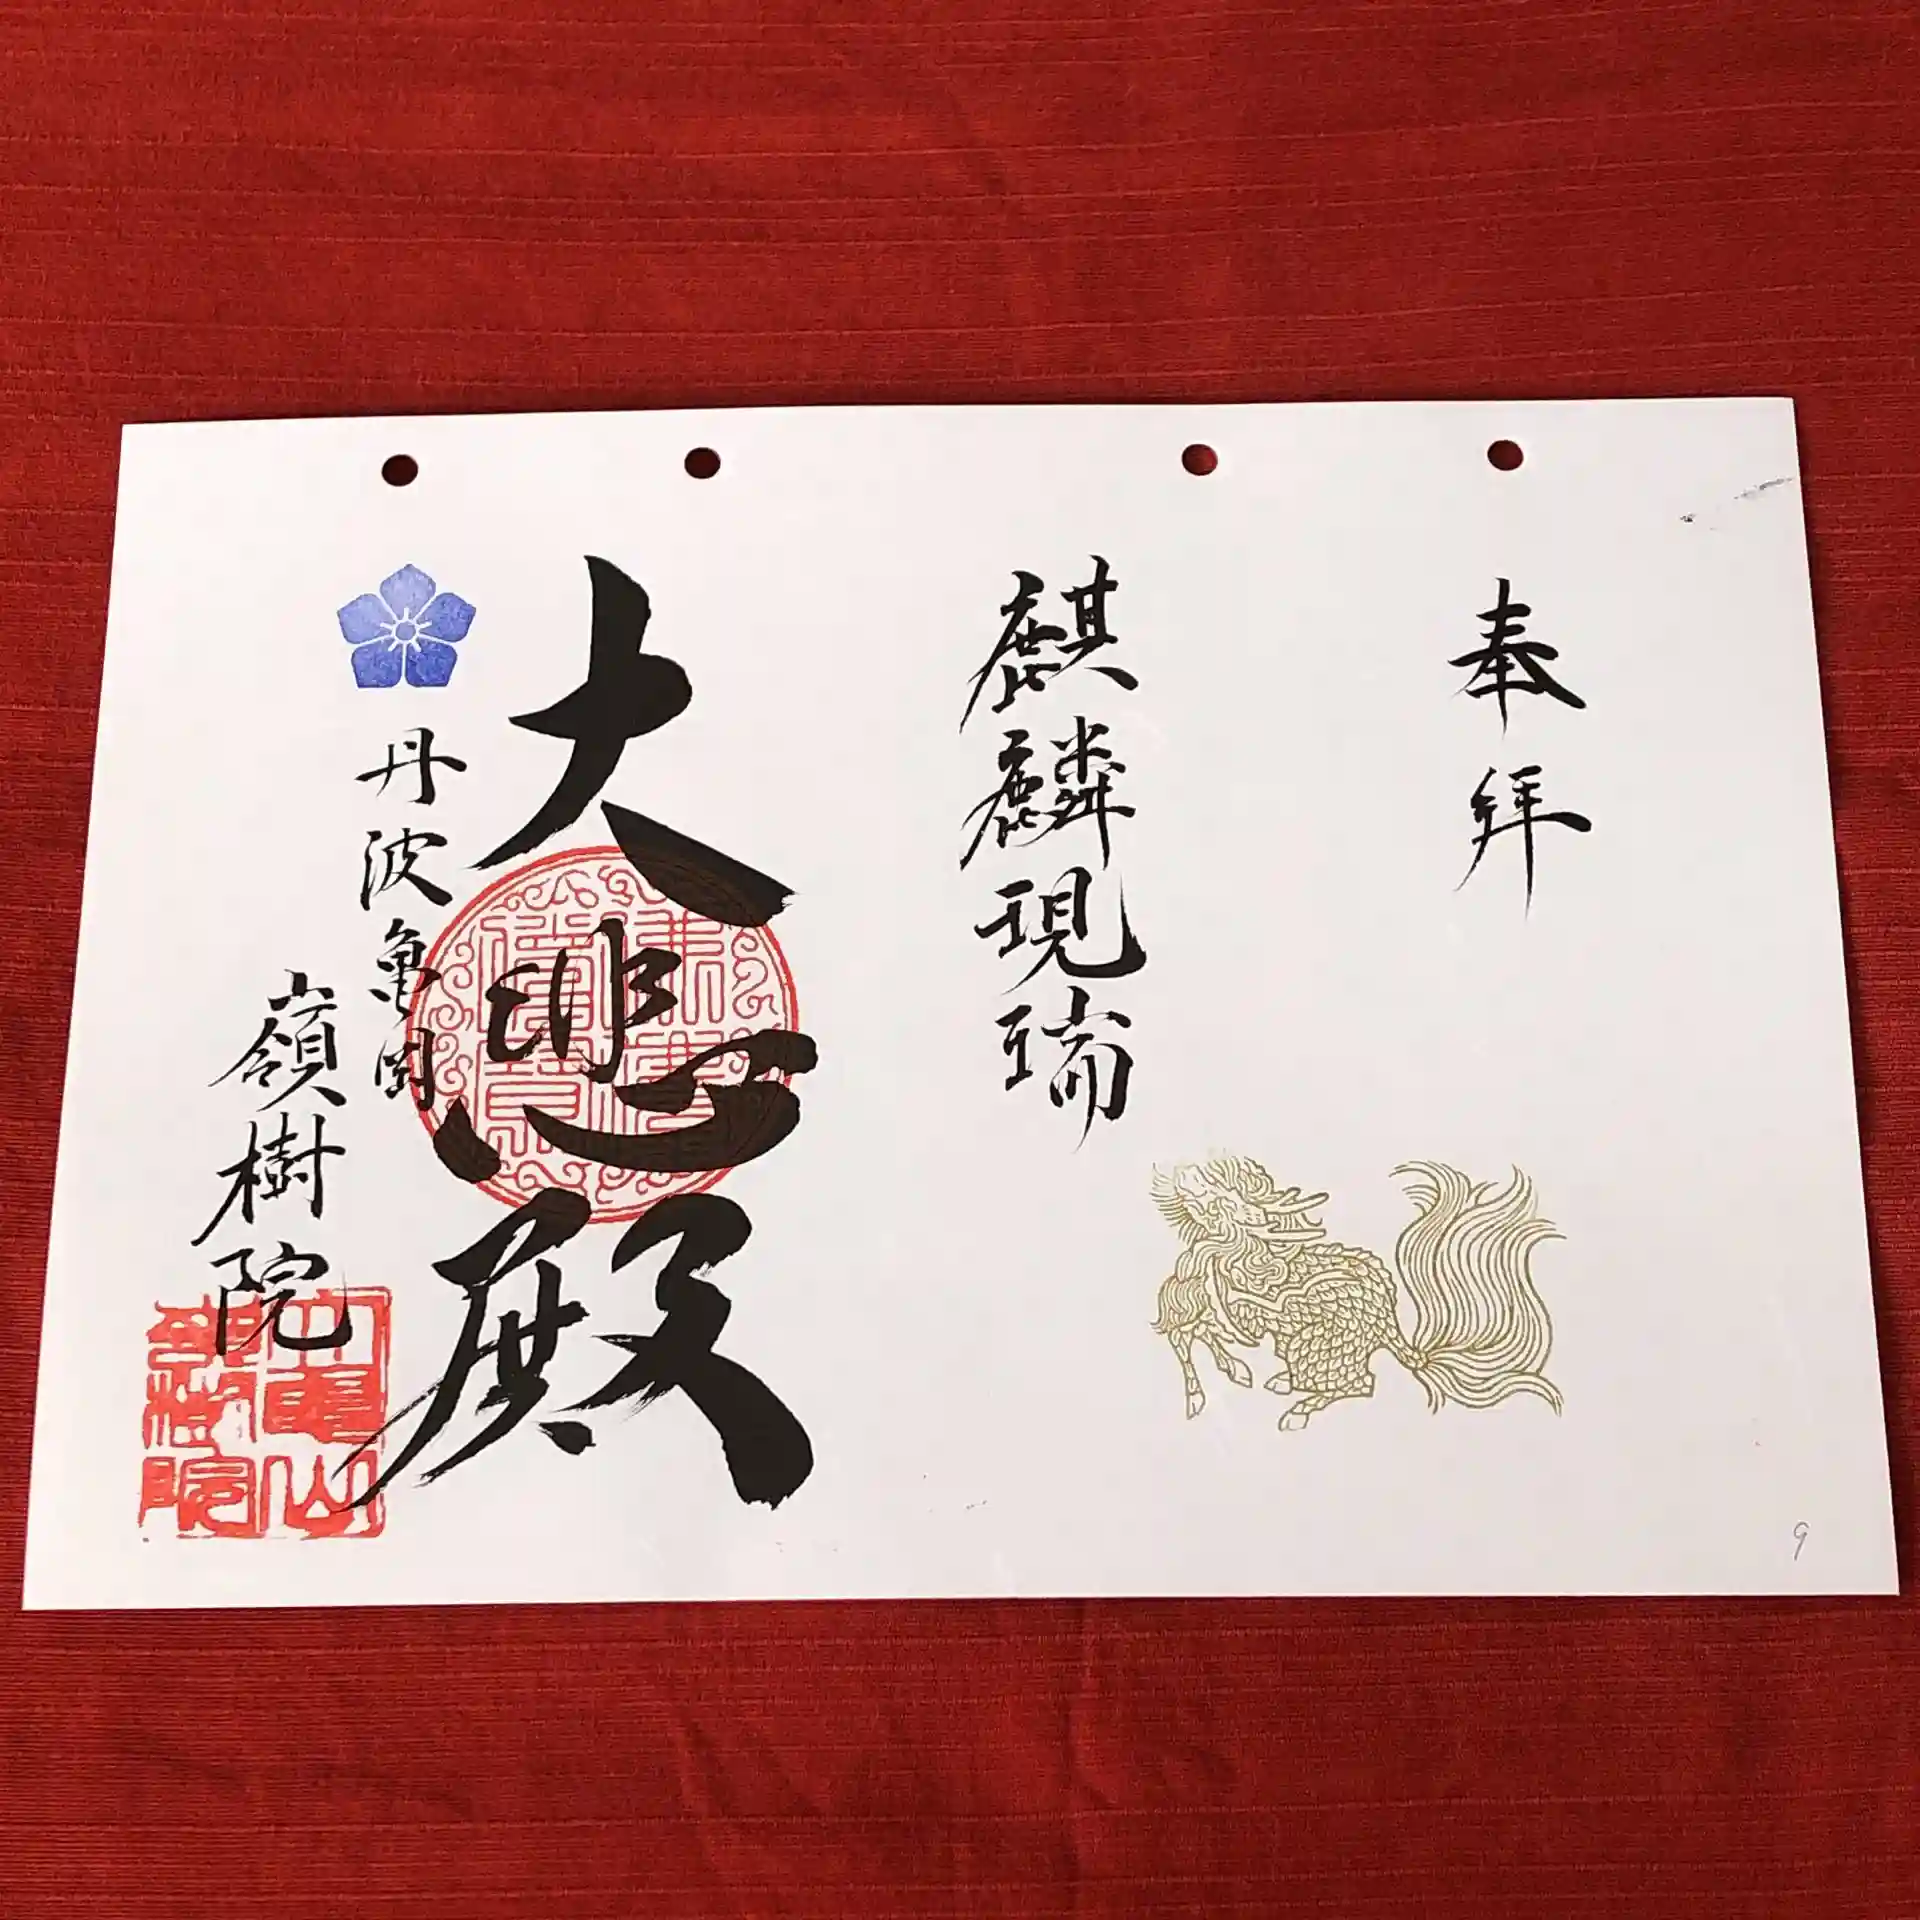 奉拜
麒麟現瑞
大悲殿
丹波亀岡
嶺樹院
9